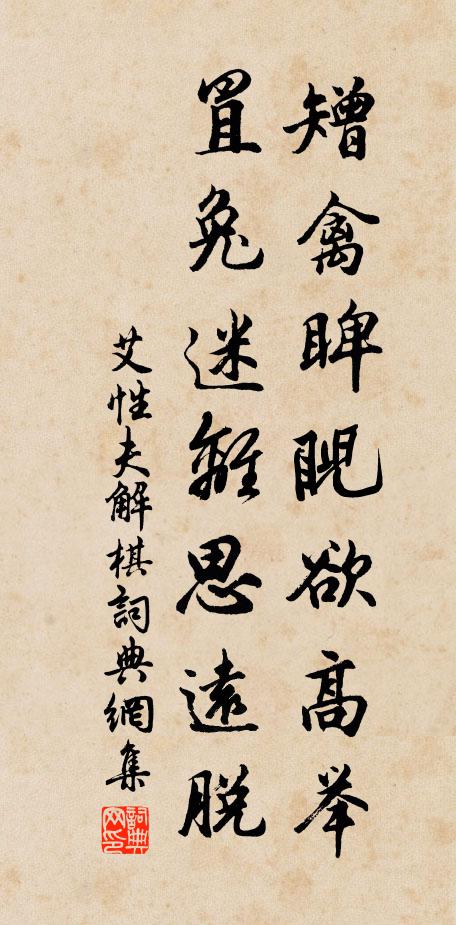 矰禽睥睨欲高举
罝兔迷離思遠脱
艾性夫解棋詞典網集
詞典网印